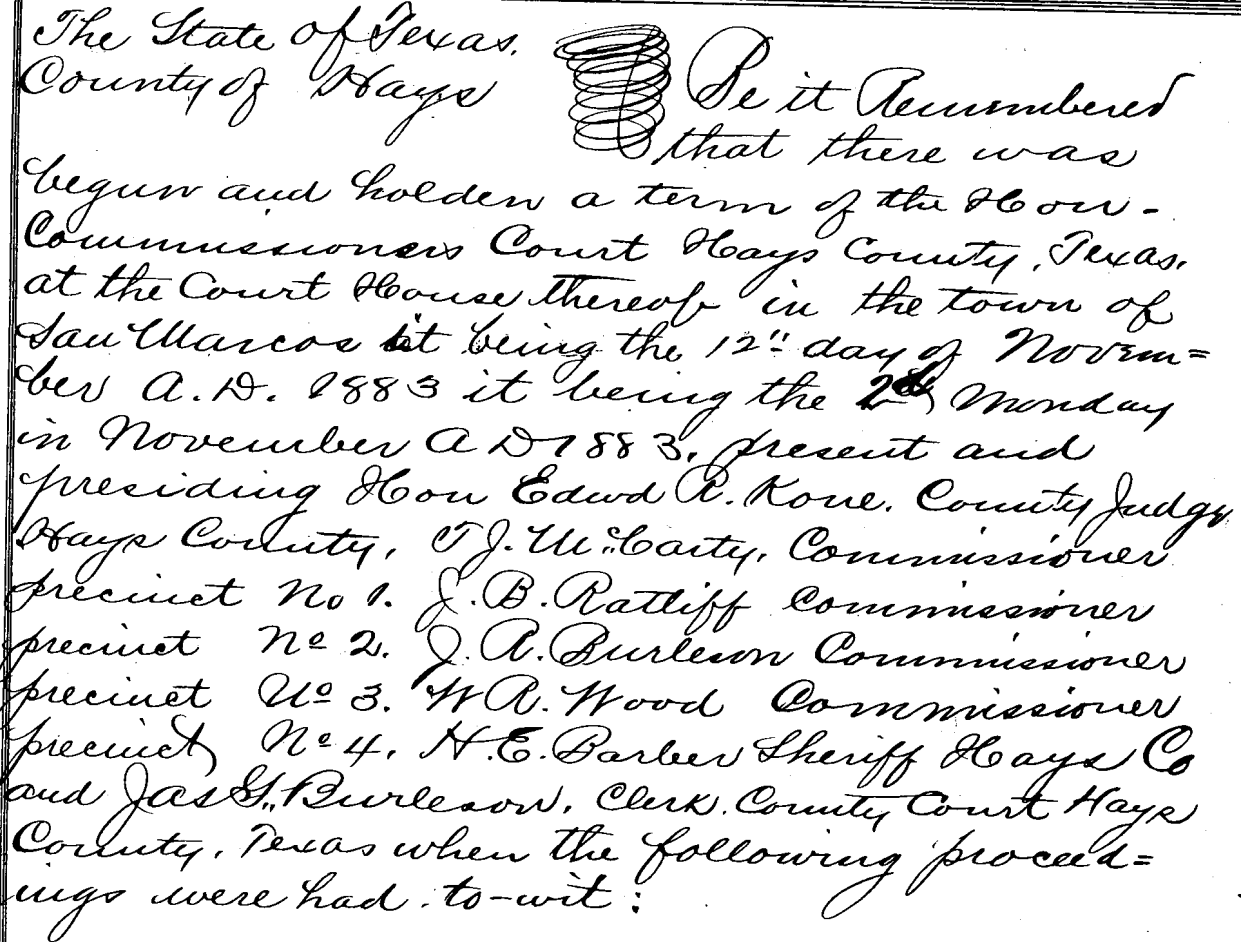 The State of Texas.
County of Hays
Be it Remembered
that there was
begun and holden a term of the Hon-
Commissioners Court Hays County, Texas,
at the Court House thereof in the town of
San Marcos it being the 12" day of Novem=
ber A.D. 1883 it being the 2d Monday
in November A D 1883. present and
presiding Hon Edwd R. Kone. County Judge
Hays County, T J. McCarty, Commissioner
precinct No 1. J. B. Ratliff Commissioner
precinct No 2. J. A. Burleson Commissioner
precinct No 3. W R. Wood Commissioner
precinct No 4. H. E. Barber Sheriff Hays Co
and Jas G. Burleson. Clerk. County Court Hays
County, Texas when the following proceed=
ings were had. to-wit: